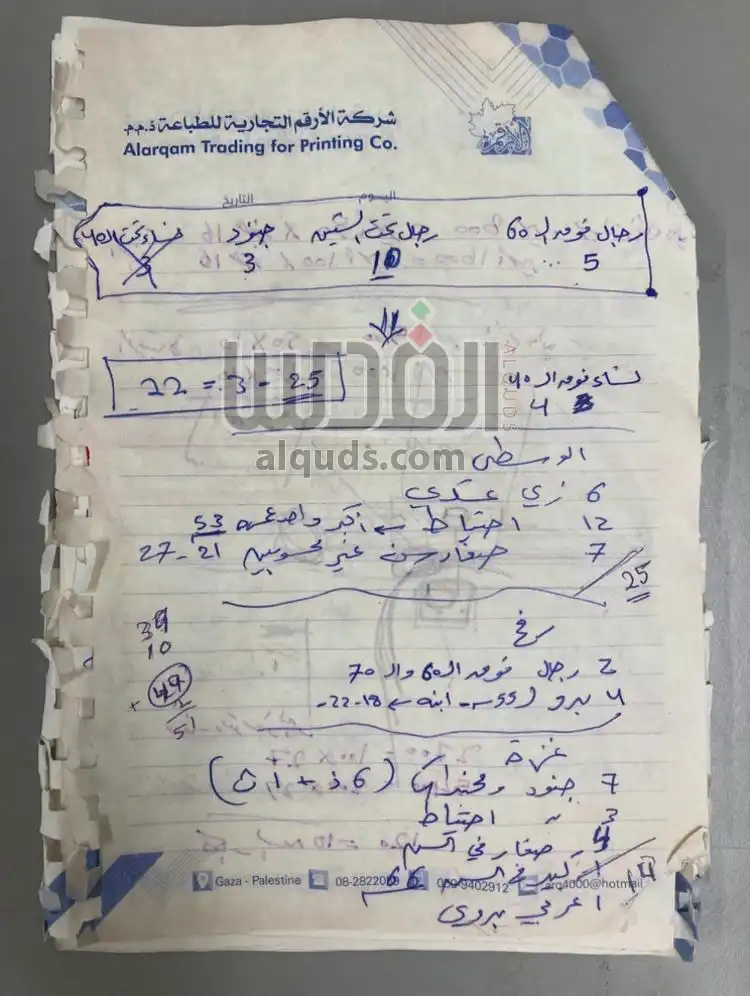 شركة الأرقم التجارية للطباعة ذ.م.م
Alarqam Trading for Printing Co.
اليوم التاريخ
رجال فوق الـ 60 رجال تحت الستين جنود نساء تحت الـ 40
5 10 3 3
نساء فوق الـ 40
4
25 - 3 = 22
القدس
ALQUDS
alquds.com
الوسطى
6 زي عسكري
12 احتياط ← أكبر واحد عمره 53
7 صغار سن غير محسوبين 21-27
25
39
10
49
2
51
رفح
2 رجال فوق الـ 60 والـ 70
4 بدو (55 - ابنه ← 18-22-
غزة
7 جنود ومجندات (6 ذ + 1 ث)
3 " احتياط
4 صغار في السن
1 كبير في السن 66
14
1 عربي بدوي
Gaza - Palestine 08-2822 059-9402912 arq4000@hotmail